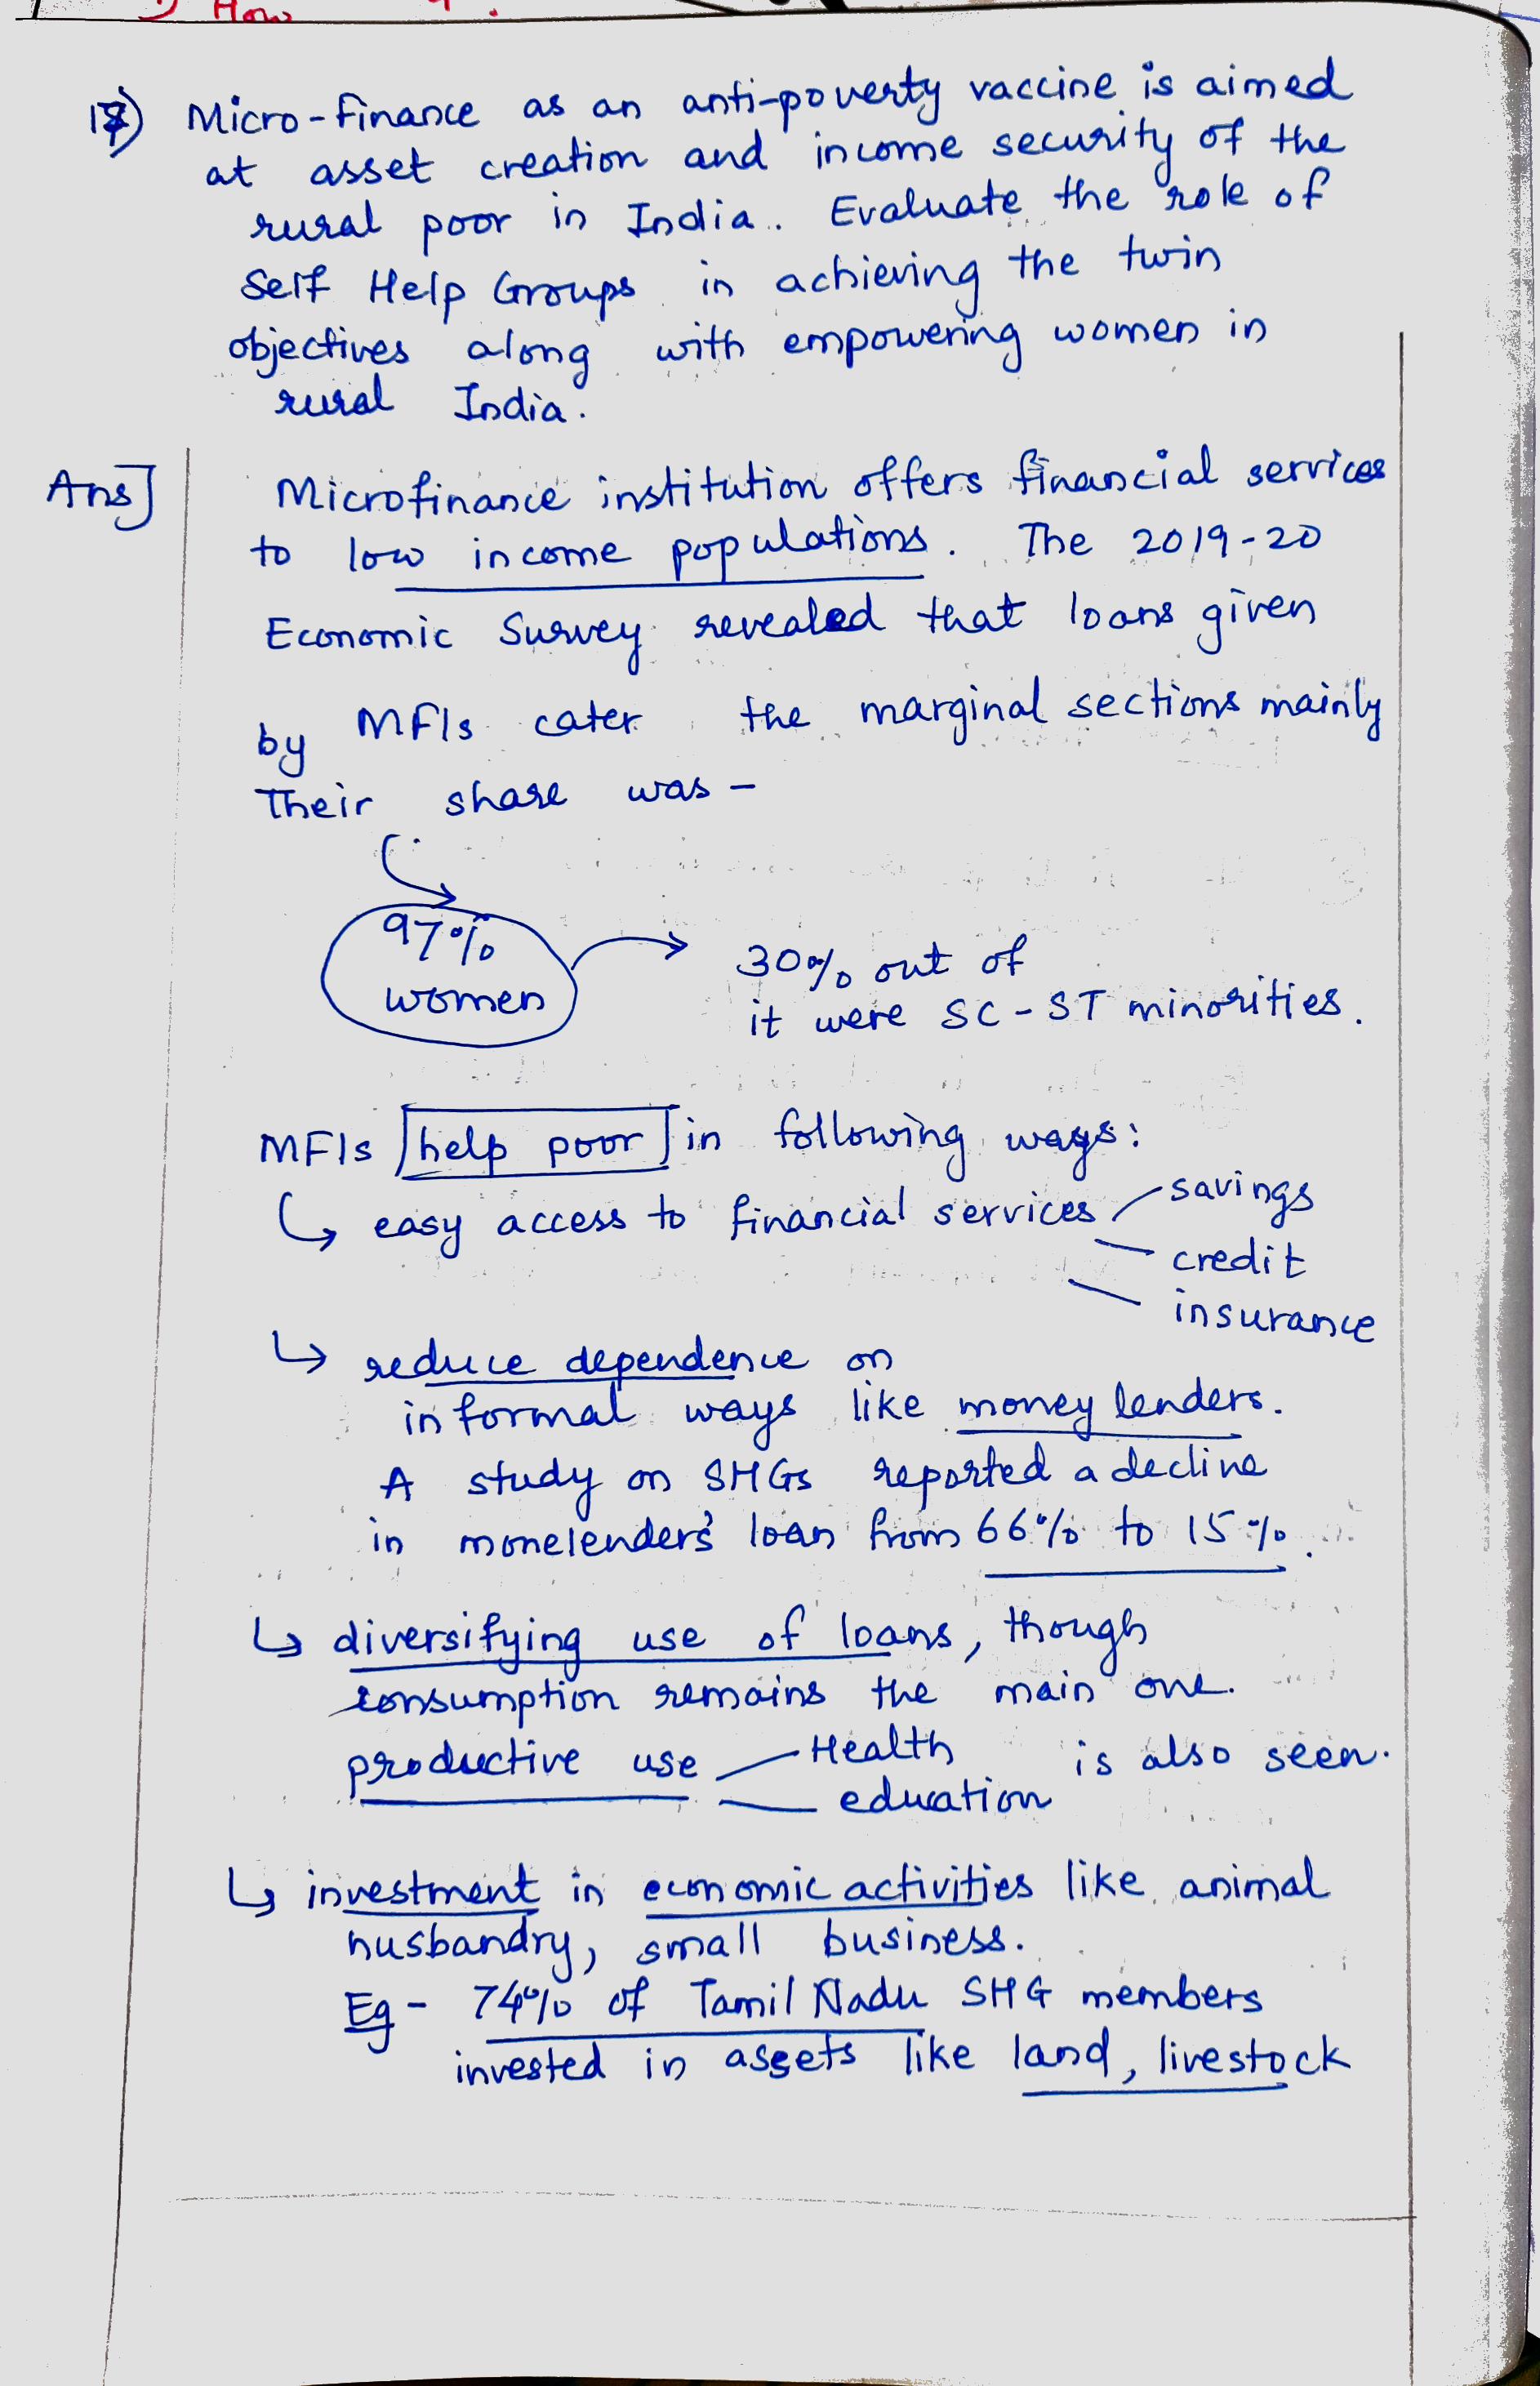 How
17) Micro-finance as an anti-poverty vaccine is aimed
at asset creation and income security of the
rural poor in India. Evaluate the role of
Self Help Groups in achieving the twin
objectives along with empowering women in
rural India.
Ans] Microfinance institution offers financial services
to low income populations. The 2019-20
Economic Survey revealed that loans given
by MFIs cater the marginal sections mainly
Their share was -
97%
women
30% out of
it were SC-ST minorities.
MFIs help poor in following ways:
↳ easy access to financial services
savings
credit
insurance
↳ reduce dependence on
informal ways like money lenders.
A study on SHGs reported a decline
in monelenders' loan from 66% to 15%.
↳ diversifying use of loans, though
consumption remains the main one.
productive use Health is also seen.
education
↳ investment in economic activities like animal
husbandry, small business.
Eg - 74% of Tamil Nadu SHG members
invested in assets like land, livestock